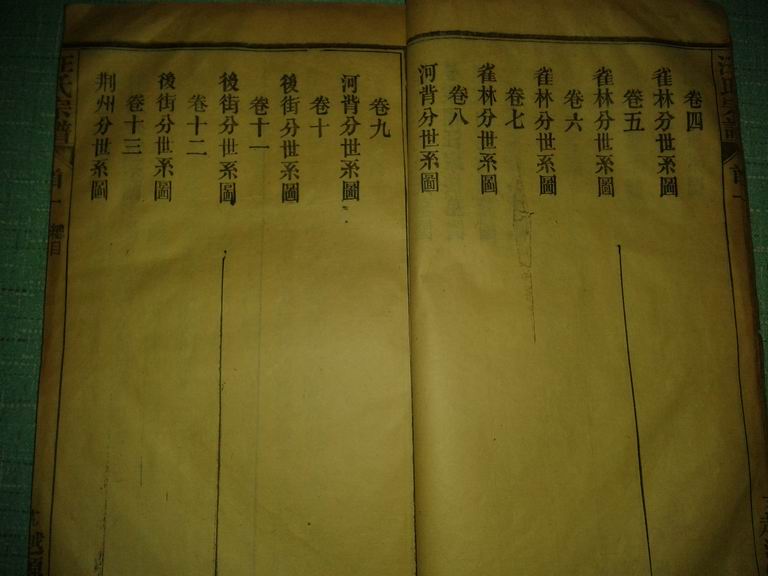 卷四
雀林分世系圖
卷五
雀林分世系圖
卷六
雀林分世系圖
卷七
雀林分世系圖
卷八
河背分世系圖
卷九
河背分世系圖
卷十
後街分世系圖
卷十一
後街分世系圖
卷十二
後街分世系圖
卷十三
荆州分世系圖
汪氏宗譜
首一
總目